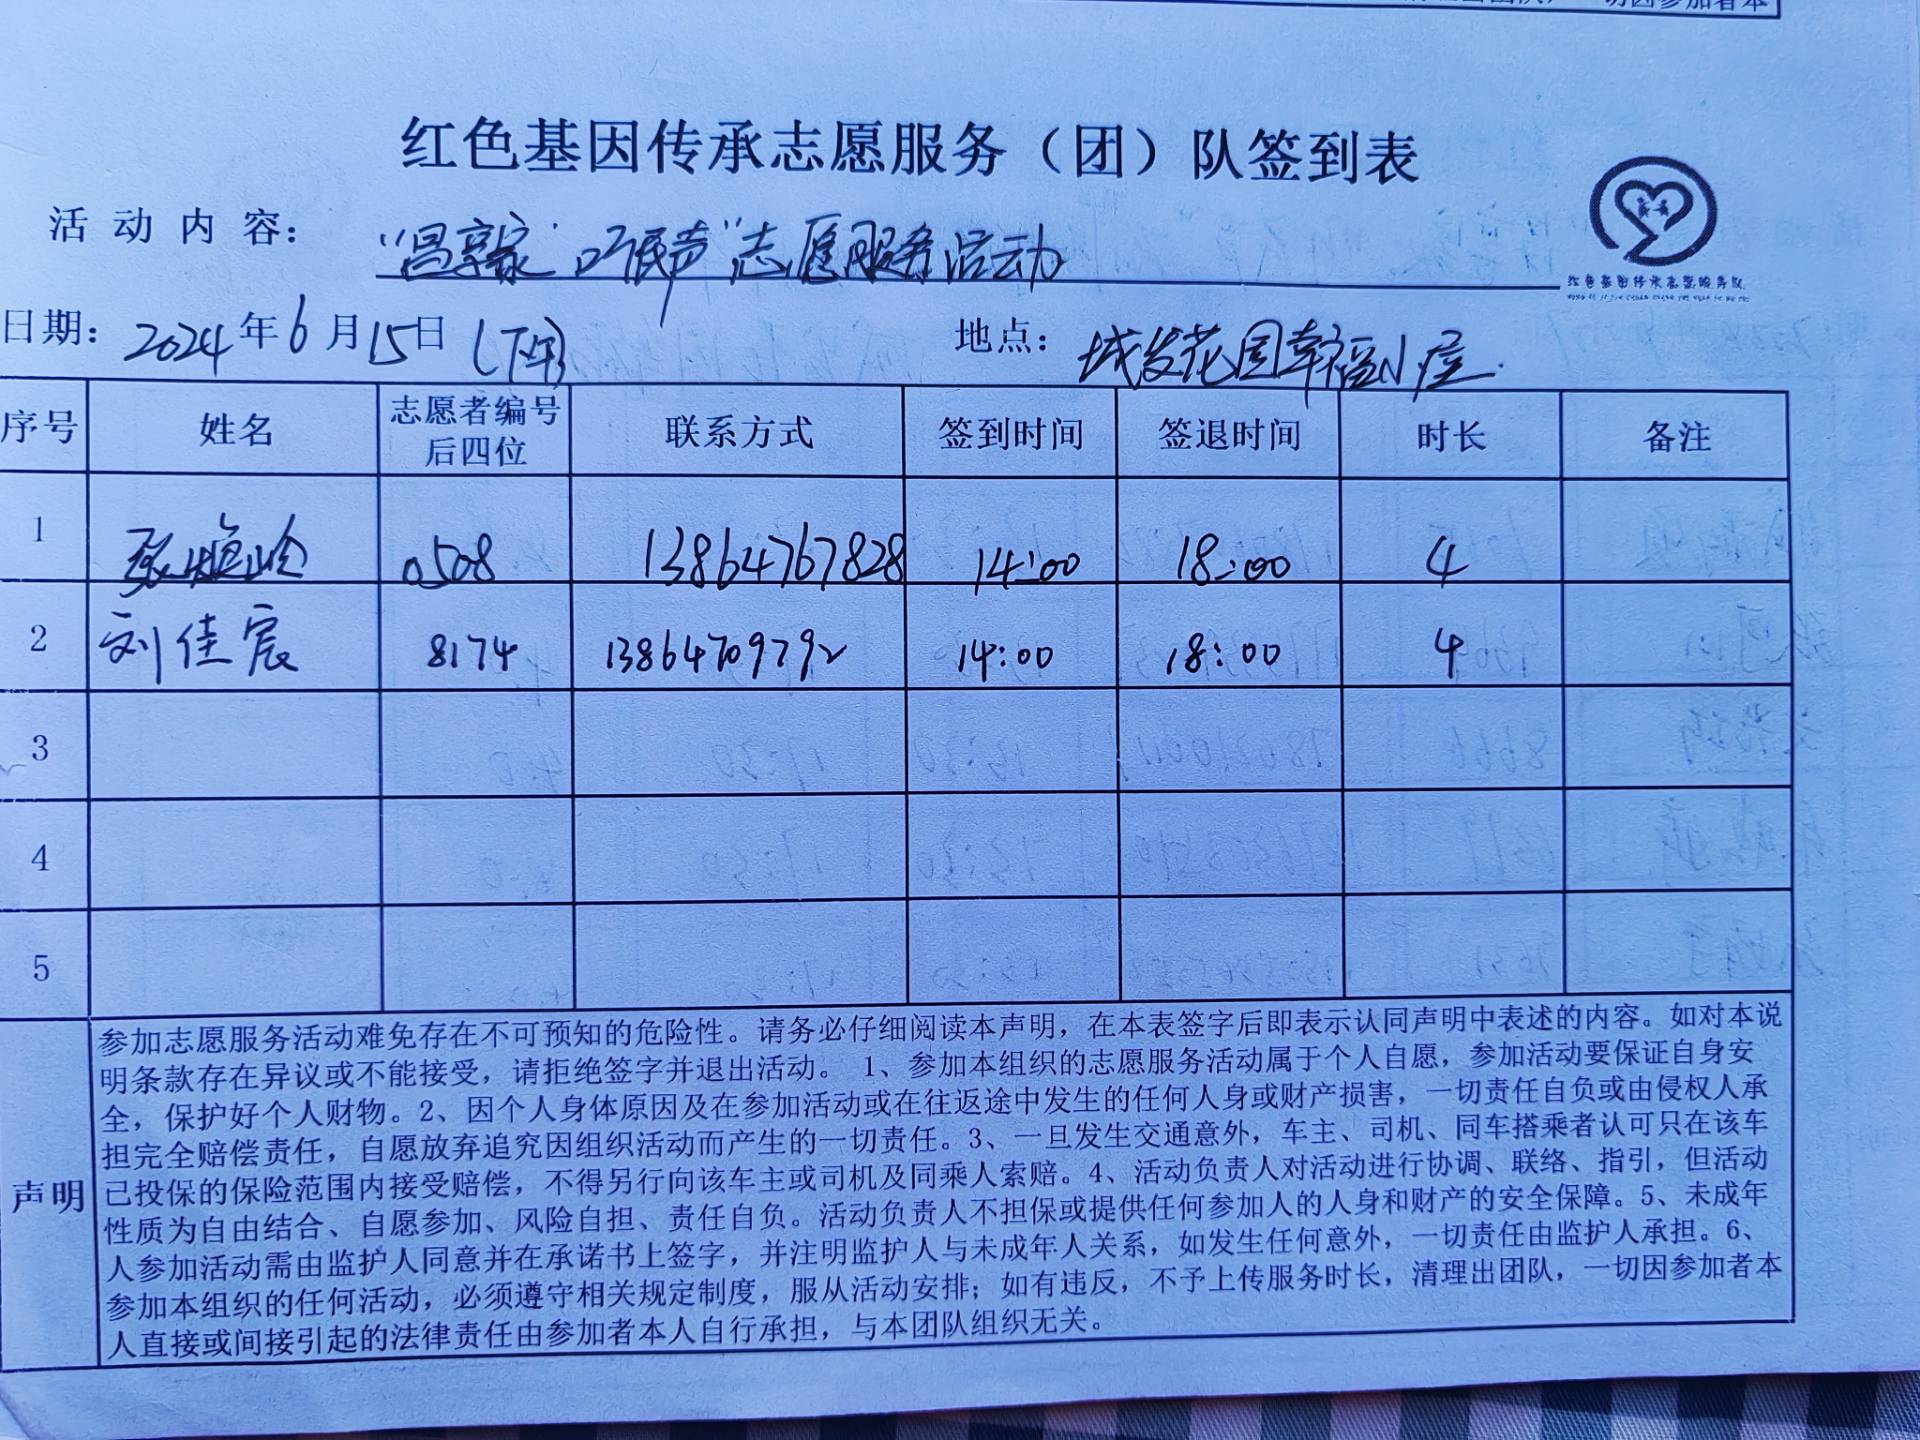 红色基因传承志愿服务（团）队签到表
活动内容：“昌享家·听民声”志愿服务活动
红色基因传承志愿服务队
日期：2024年6月15日（下午） 地点：城发花园幸福小屋
序号 姓名 志愿者编号后四位 联系方式 签到时间 签退时间 时长 备注
1 0508 13864767828 14:00 18:00 4
2 刘佳宸 8174 13864709792 14:00 18:00 4
3
4
5
声明
参加志愿服务活动难免存在不可预知的危险性。请务必仔细阅读本声明，在本表签字后即表示认同声明中表述的内容。如对本说
明条款存在异议或不能接受，请拒绝签字并退出活动。 1、参加本组织的志愿服务活动属于个人自愿，参加活动要保证自身安
全，保护好个人财物。2、因个人身体原因及在参加活动或在往返途中发生的任何人身或财产损害，一切责任自负或由侵权人承
担完全赔偿责任，自愿放弃追究因组织活动而产生的一切责任。3、一旦发生交通意外，车主、司机、同车搭乘者认可只在该车
已投保的保险范围内接受赔偿，不得另行向该车主或司机及同乘人索赔。4、活动负责人对活动进行协调、联络、指引，但活动
性质为自由结合、自愿参加、风险自担、责任自负。活动负责人不担保或提供任何参加人的人身和财产的安全保障。5、未成年
人参加活动需由监护人同意并在承诺书上签字，并注明监护人与未成年人关系，如发生任何意外，一切责任由监护人承担。6、
参加本组织的任何活动，必须遵守相关规定制度，服从活动安排；如有违反，不予上传服务时长，清理出团队，一切因参加者本
人直接或间接引起的法律责任由参加者本人自行承担，与本团队组织无关。